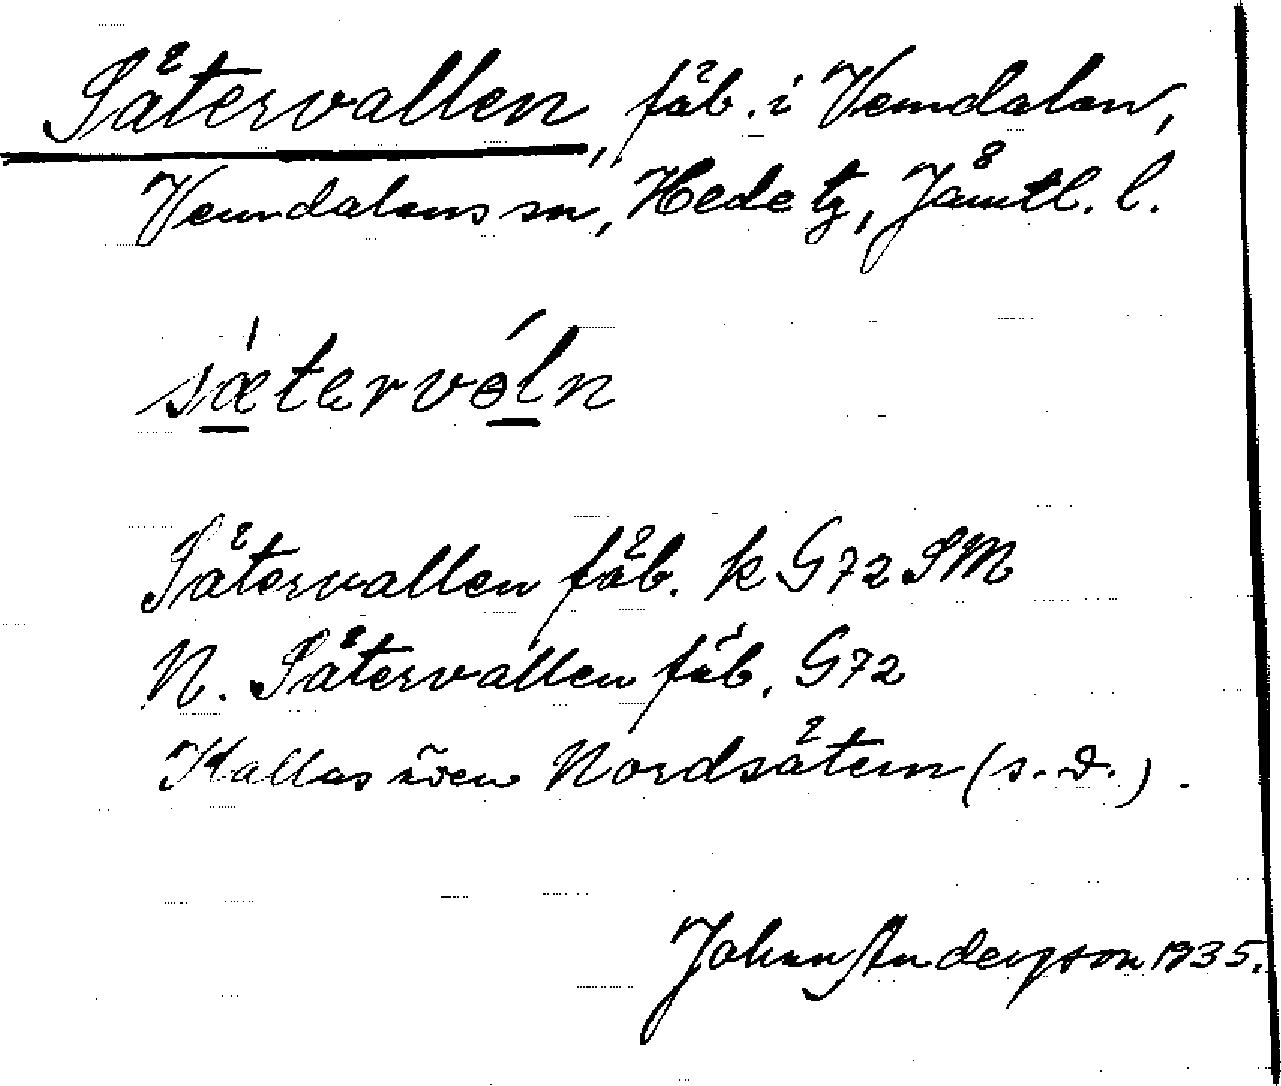 Sätervallen, fäb. i Vemdalen,
Vemdalens sn, Hede tg, Jämtl. l.
sæ̱tervɵ̱ĺn
Sätervallen fäb. k G72 SM
N. Sätervallen fäb. G72
Kallas även Nordsätern (s. d.).
Johan Anderson 1935.